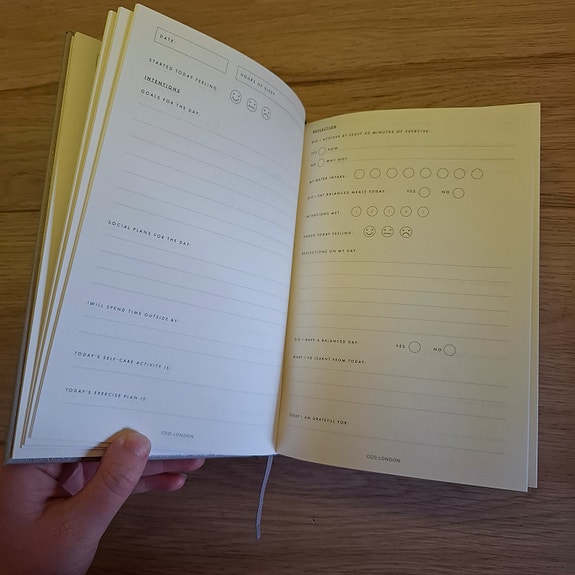 DATE:
HOURS OF SLEEP:
STARTED TODAY FEELING:
INTENTIONS
GOALS FOR THE DAY:
SOCIAL PLANS FOR THE DAY:
I WILL SPEND TIME OUTSIDE BY:
TODAY'S SELF-CARE ACTIVITY IS:
TODAY'S EXERCISE PLAN IS:
CGD LONDON
REFLECTION
DID I ACHIEVE AT LEAST 20 MINUTES OF EXERCISE:
YES HOW
NO WHY NOT
MY WATER INTAKE:
DID I EAT BALANCED MEALS TODAY: YES NO
INTENTIONS MET: 1 2 3 4 5
ENDED TODAY FEELING:
REFLECTIONS ON MY DAY:
DID I HAVE A BALANCED DAY: YES NO
WHAT I'VE LEARNT FROM TODAY:
TODAY I AM GRATEFUL FOR:
CGD LONDON